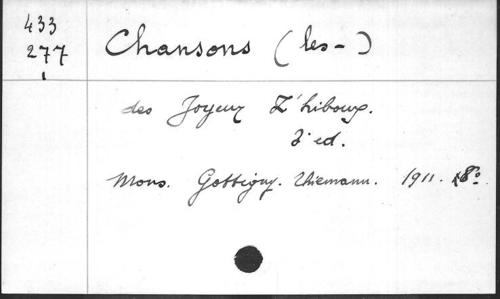 433
277
Chansons (les-)
des Joyeux Z'hiboux.
3e ed.
Mons. Gottigny. Thiemann. 1911. 8o